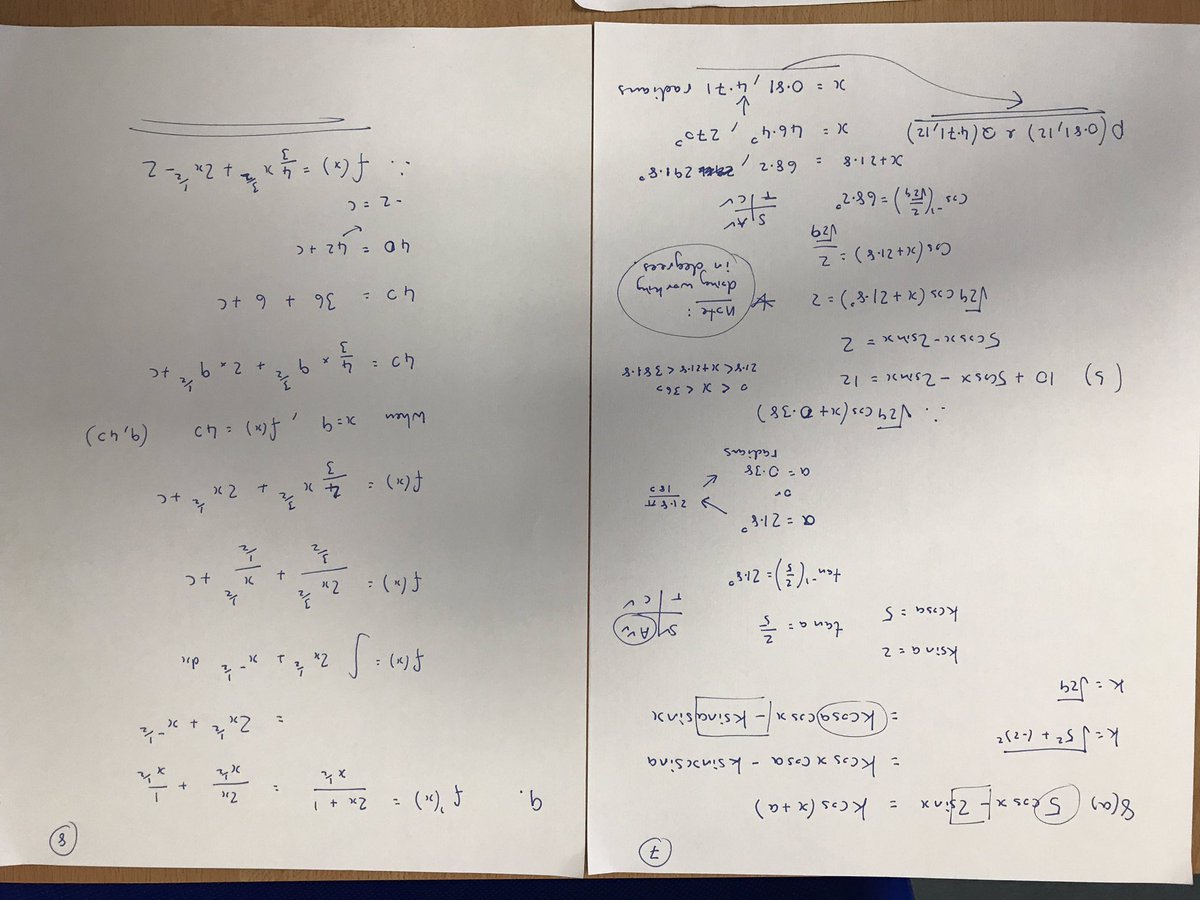 7
8(a) 5cosx - 2sinx = kcos(x+a)
= kcosxcosa - ksinxsina
= kcosacosx - ksinasinx
k = √5² + (-2)²
k = √29
ksina = 2
kcosa = 5
tana = 2/5
S✓ | A✓✓
T | C✓
tan⁻¹(2/5) = 21.8°
a = 21.8°
or
a = 0.38
radians
21.8π/180
∴ √29 cos(x+0.38)
(b) 10 + 5cosx - 2sinx = 12
5cosx - 2sinx = 2
0 < x < 360
21.8 < x+21.8 < 381.8
√29 cos(x+21.8°) = 2
* Note:
doing working
in degrees
cos(x+21.8) = 2/√29
cos⁻¹(2/√29) = 68.2°
S | A✓
T | C✓
x+21.8 = 68.2, 291.8°
x = 46.4°, 270°
x = 0.81, 4.71 radians
P(0.81,12) & Q(4.71,12)
8
9. f'(x) = (2x+1)/x^½ = 2x/x^½ + 1/x^½
= 2x^½ + x^-½
f(x) = ∫ 2x^½ + x^-½ dx
f(x) = 2x^(3/2)/(3/2) + x^½/(1/2) + c
f(x) = 4/3 x^(3/2) + 2x^½ + c
when x=9, f(x) = 40 (9,40)
40 = 4/3 × 9^(3/2) + 2×9^½ + c
40 = 36 + 6 + c
40 = 42 + c
-2 = c
∴ f(x) = 4/3 x^(3/2) + 2x^½ - 2